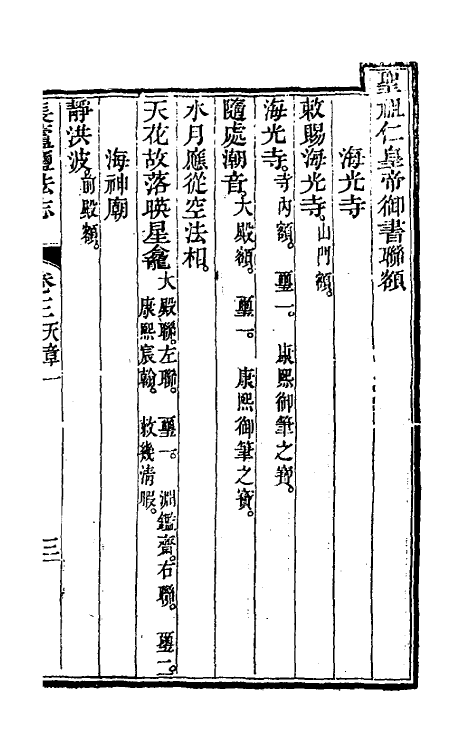 聖祖仁皇帝御書聯額
海光寺
敕賜海光寺。山門額。
海光寺。寺內額。璽一。康熙御筆之寶。
隨處潮音。大殿額。璽一。康熙御筆之寶。
水月應從空法相。
天花故落暎星龕。大殿聯。左聯。璽一。淵鑑齋。右聯。璽二。康熙宸翰。敕幾清暇。
海神廟
靜洪波。前殿額。
長蘆鹽法志
卷二天章一
三